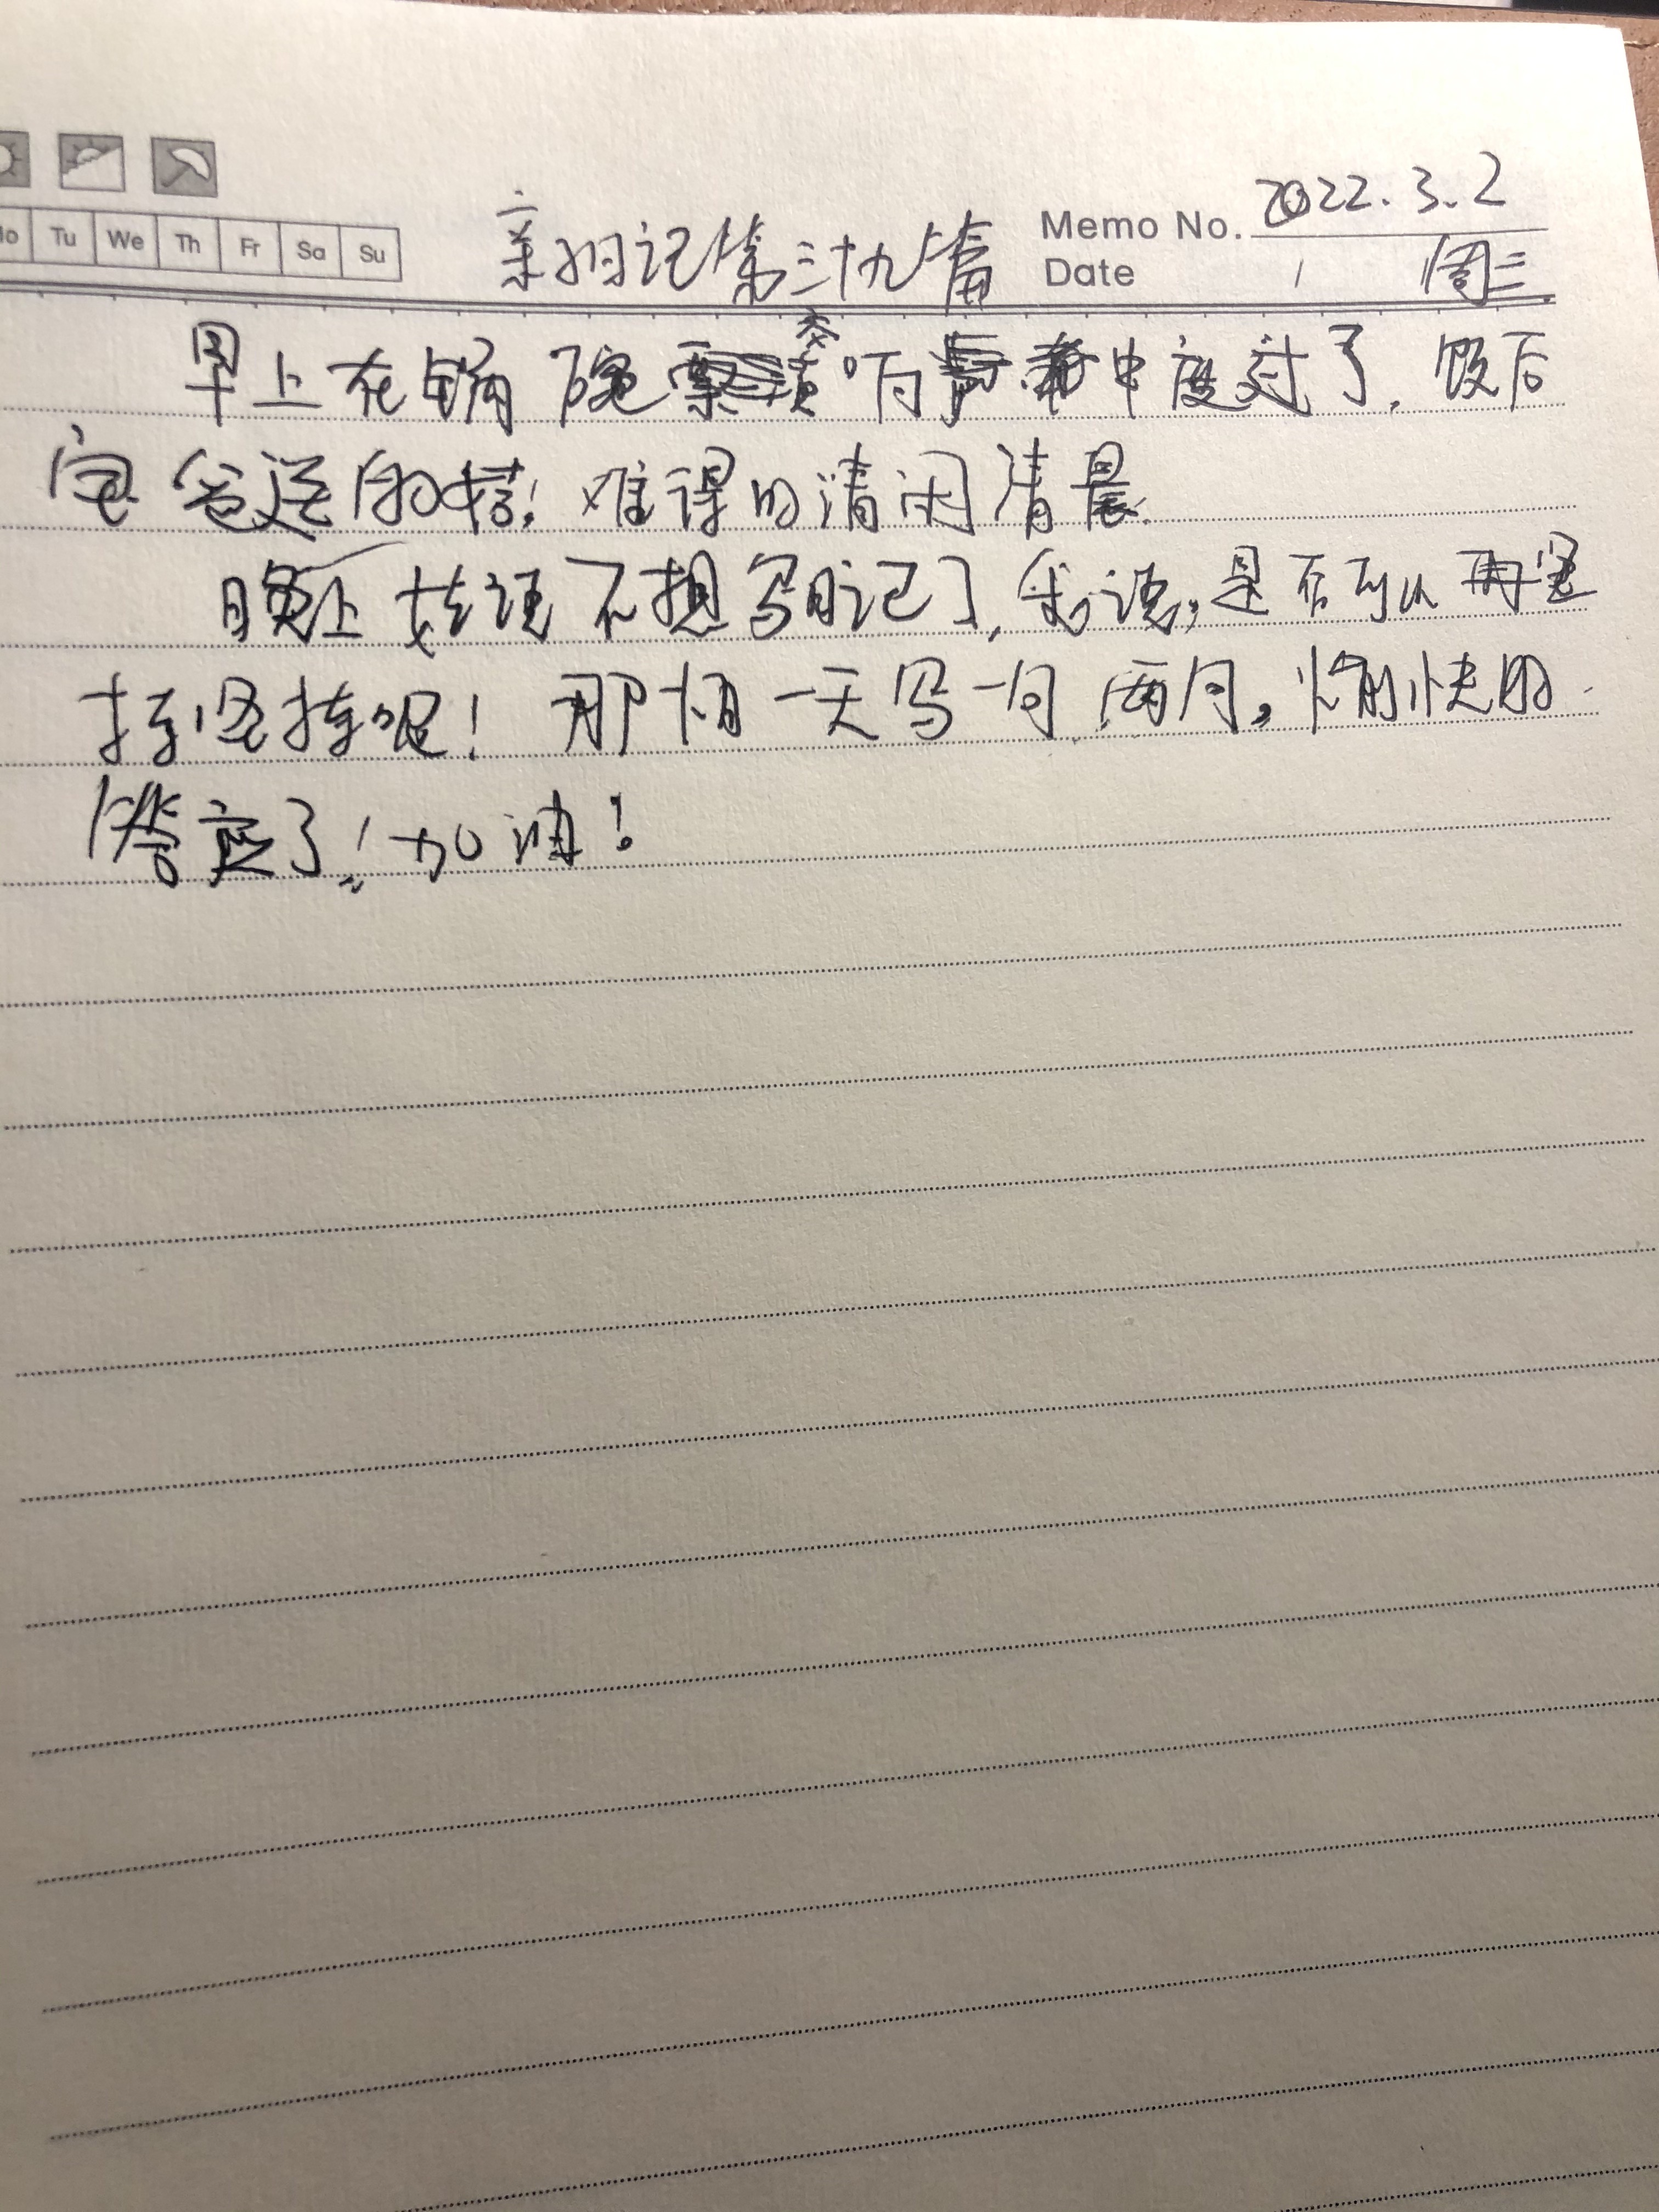 Mo Tu We Th Fr Sa Su
亲子日记第三十九篇
Memo No. 2022.3.2
Date 周三
早上在锅碗交响中度过了,饭后
宝爸送的娃!难得的清闲清晨.
晚上女说不想写日记了,我说,是否可以再坚
持坚持呢!那怕一天写一句两句,愉快的
答应了!加油!